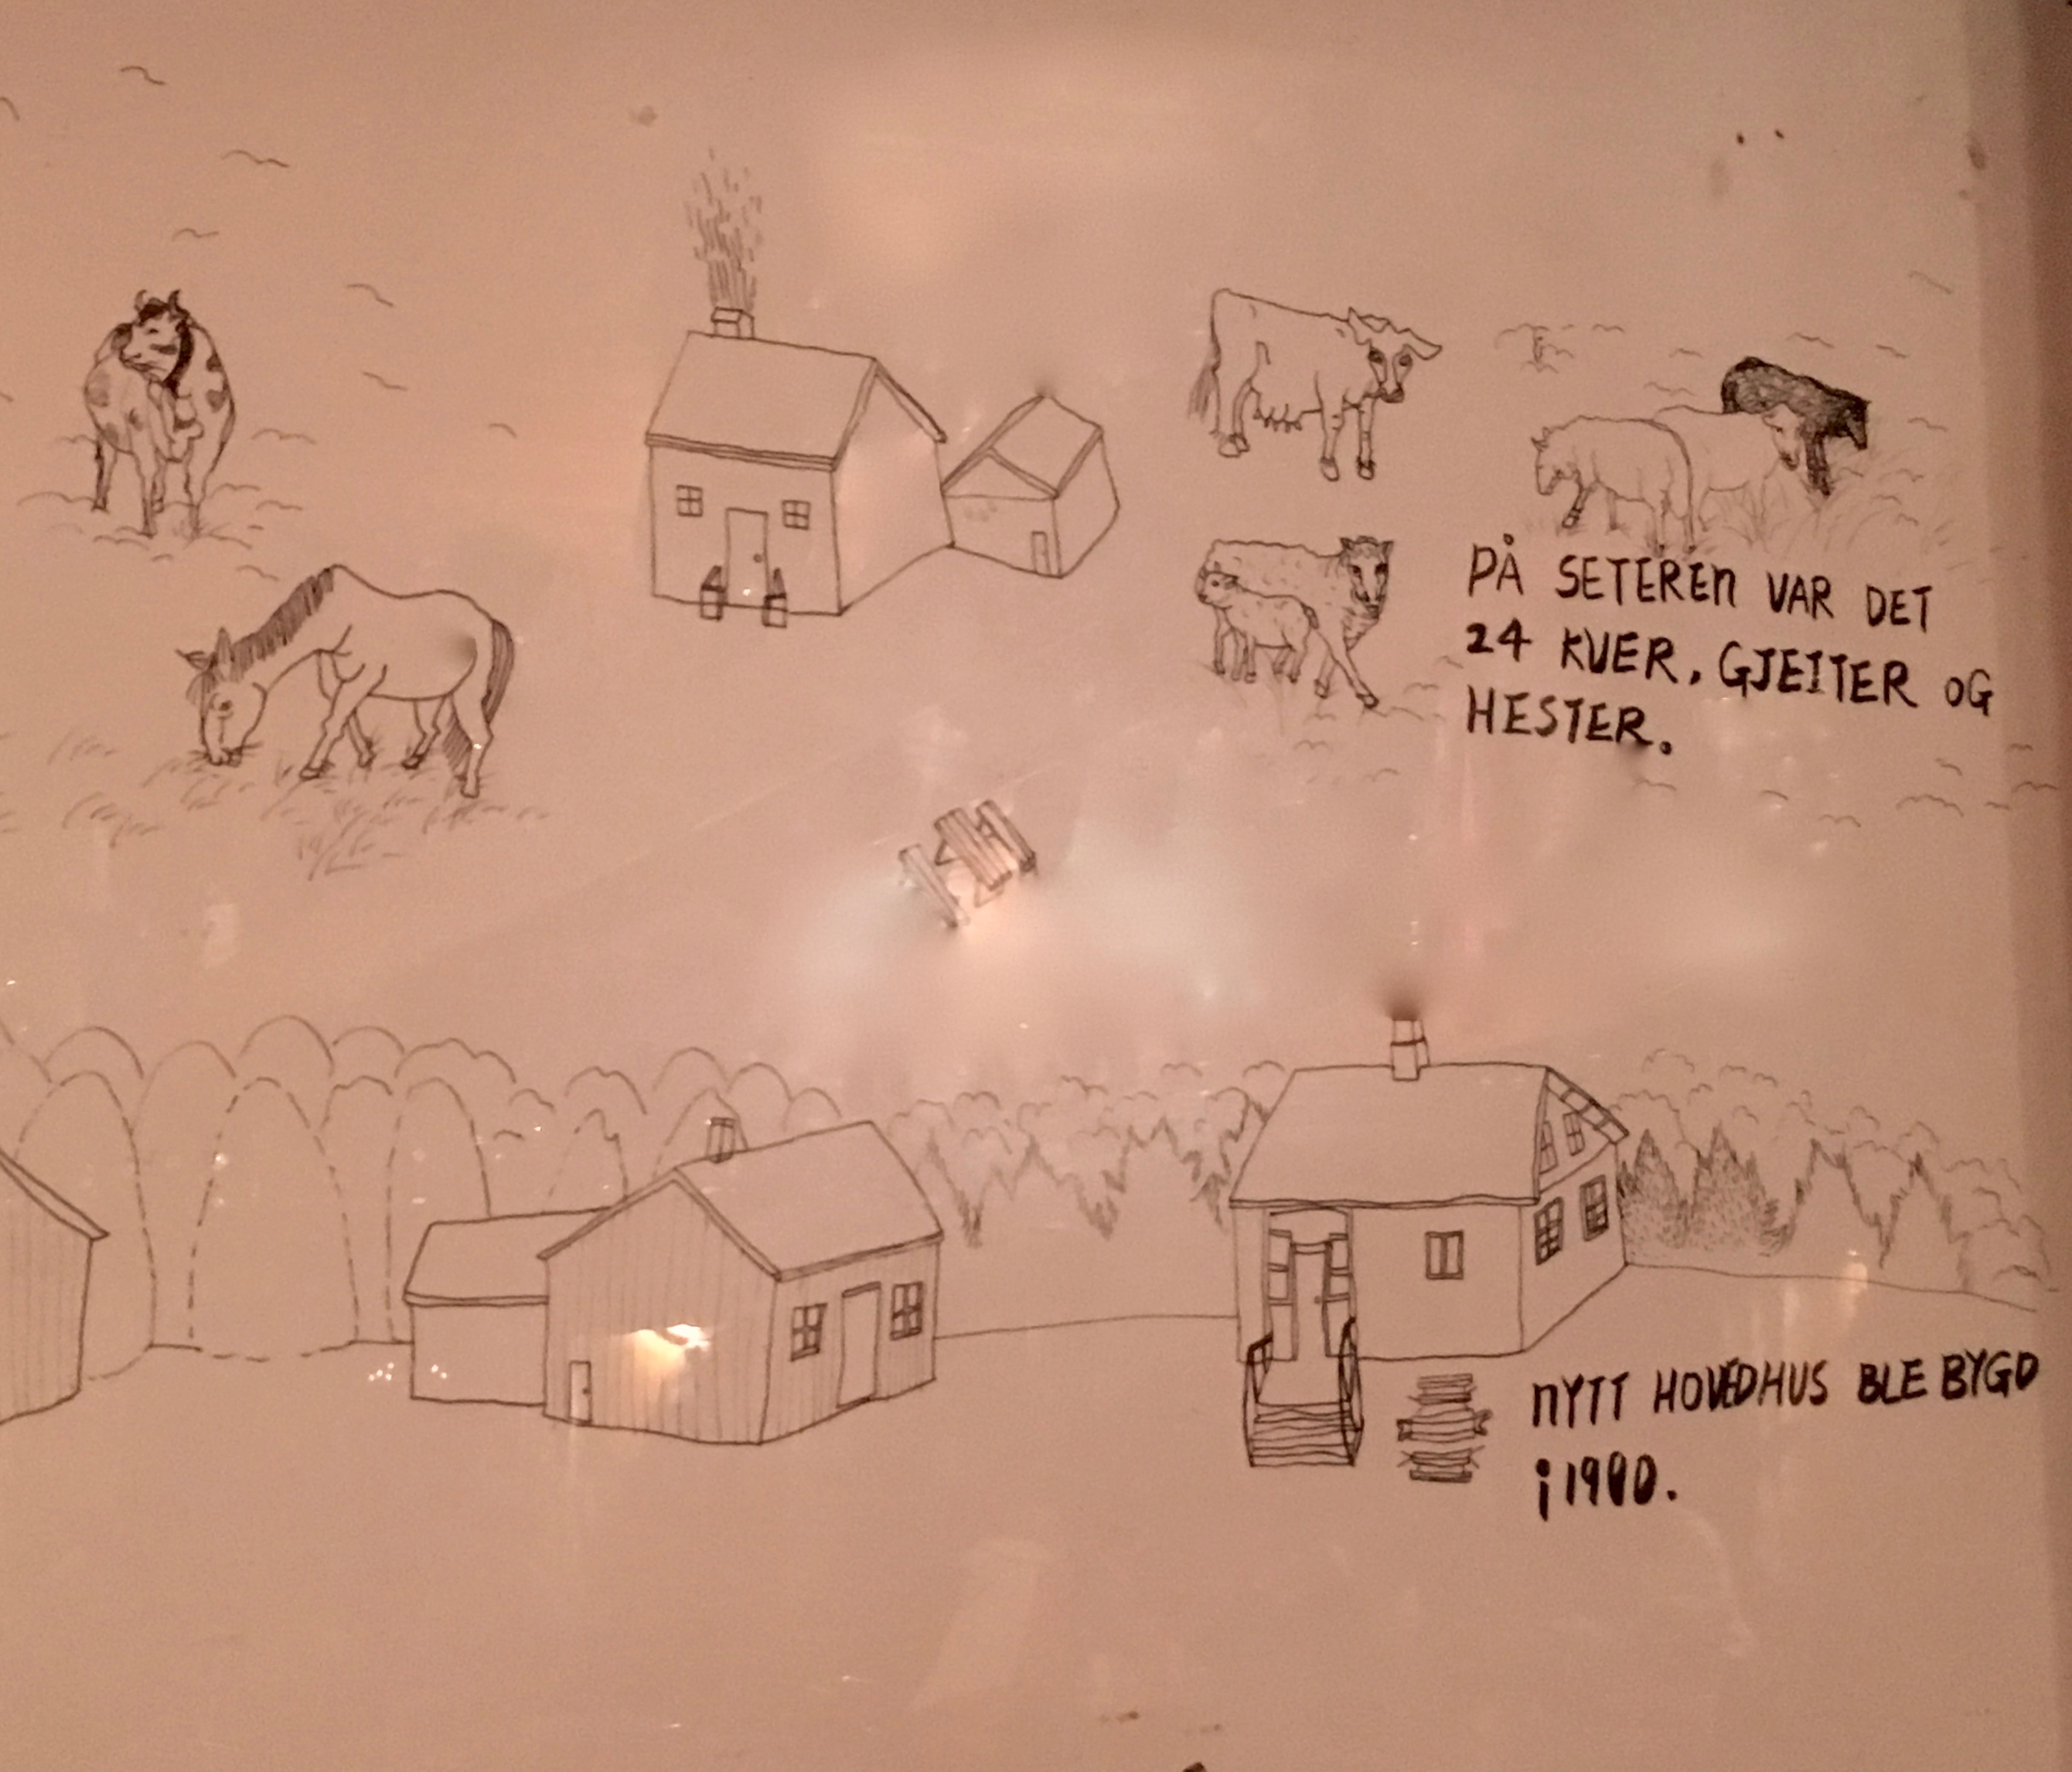 PÅ SETEREN VAR DET
24 KUER, GJEITER OG
HESTER.
NYTT HOVEDHUS BLE BYGD
i 1900.